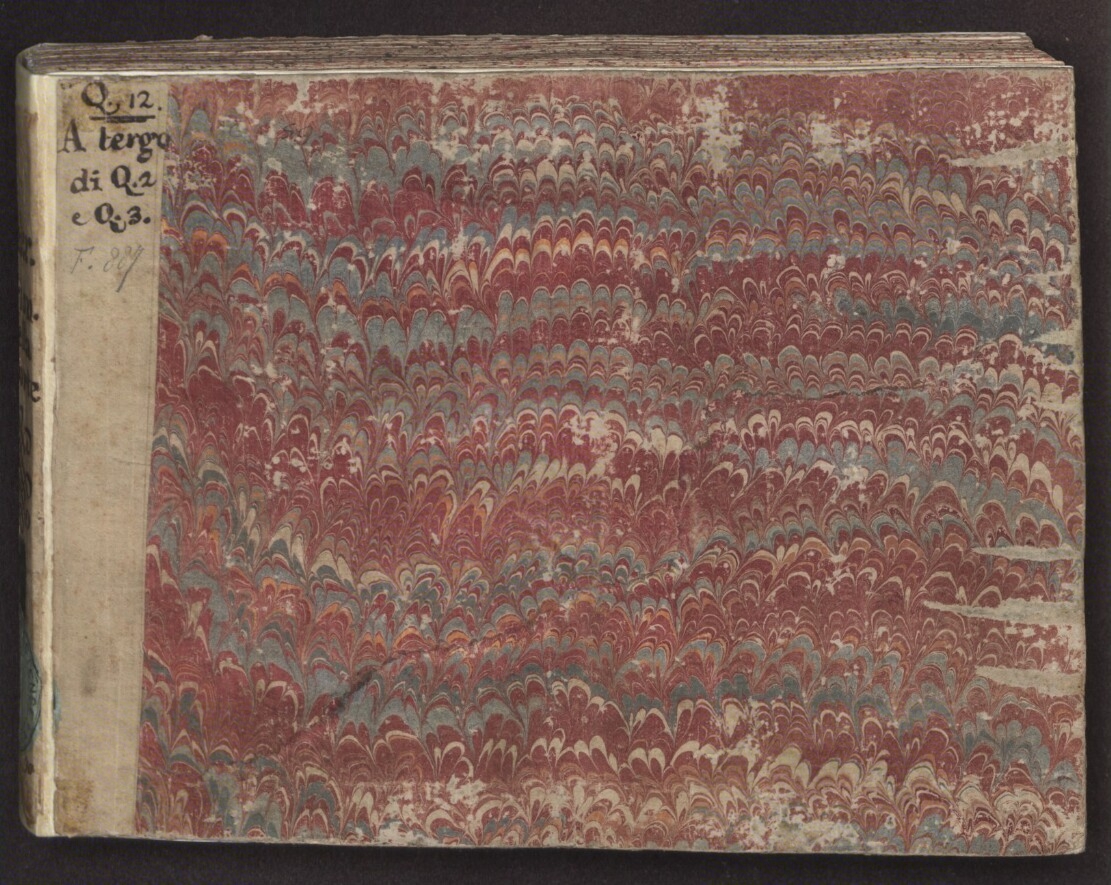 Q. 12.
A tergo
di Q. 2
e Q. 3.
F. 887